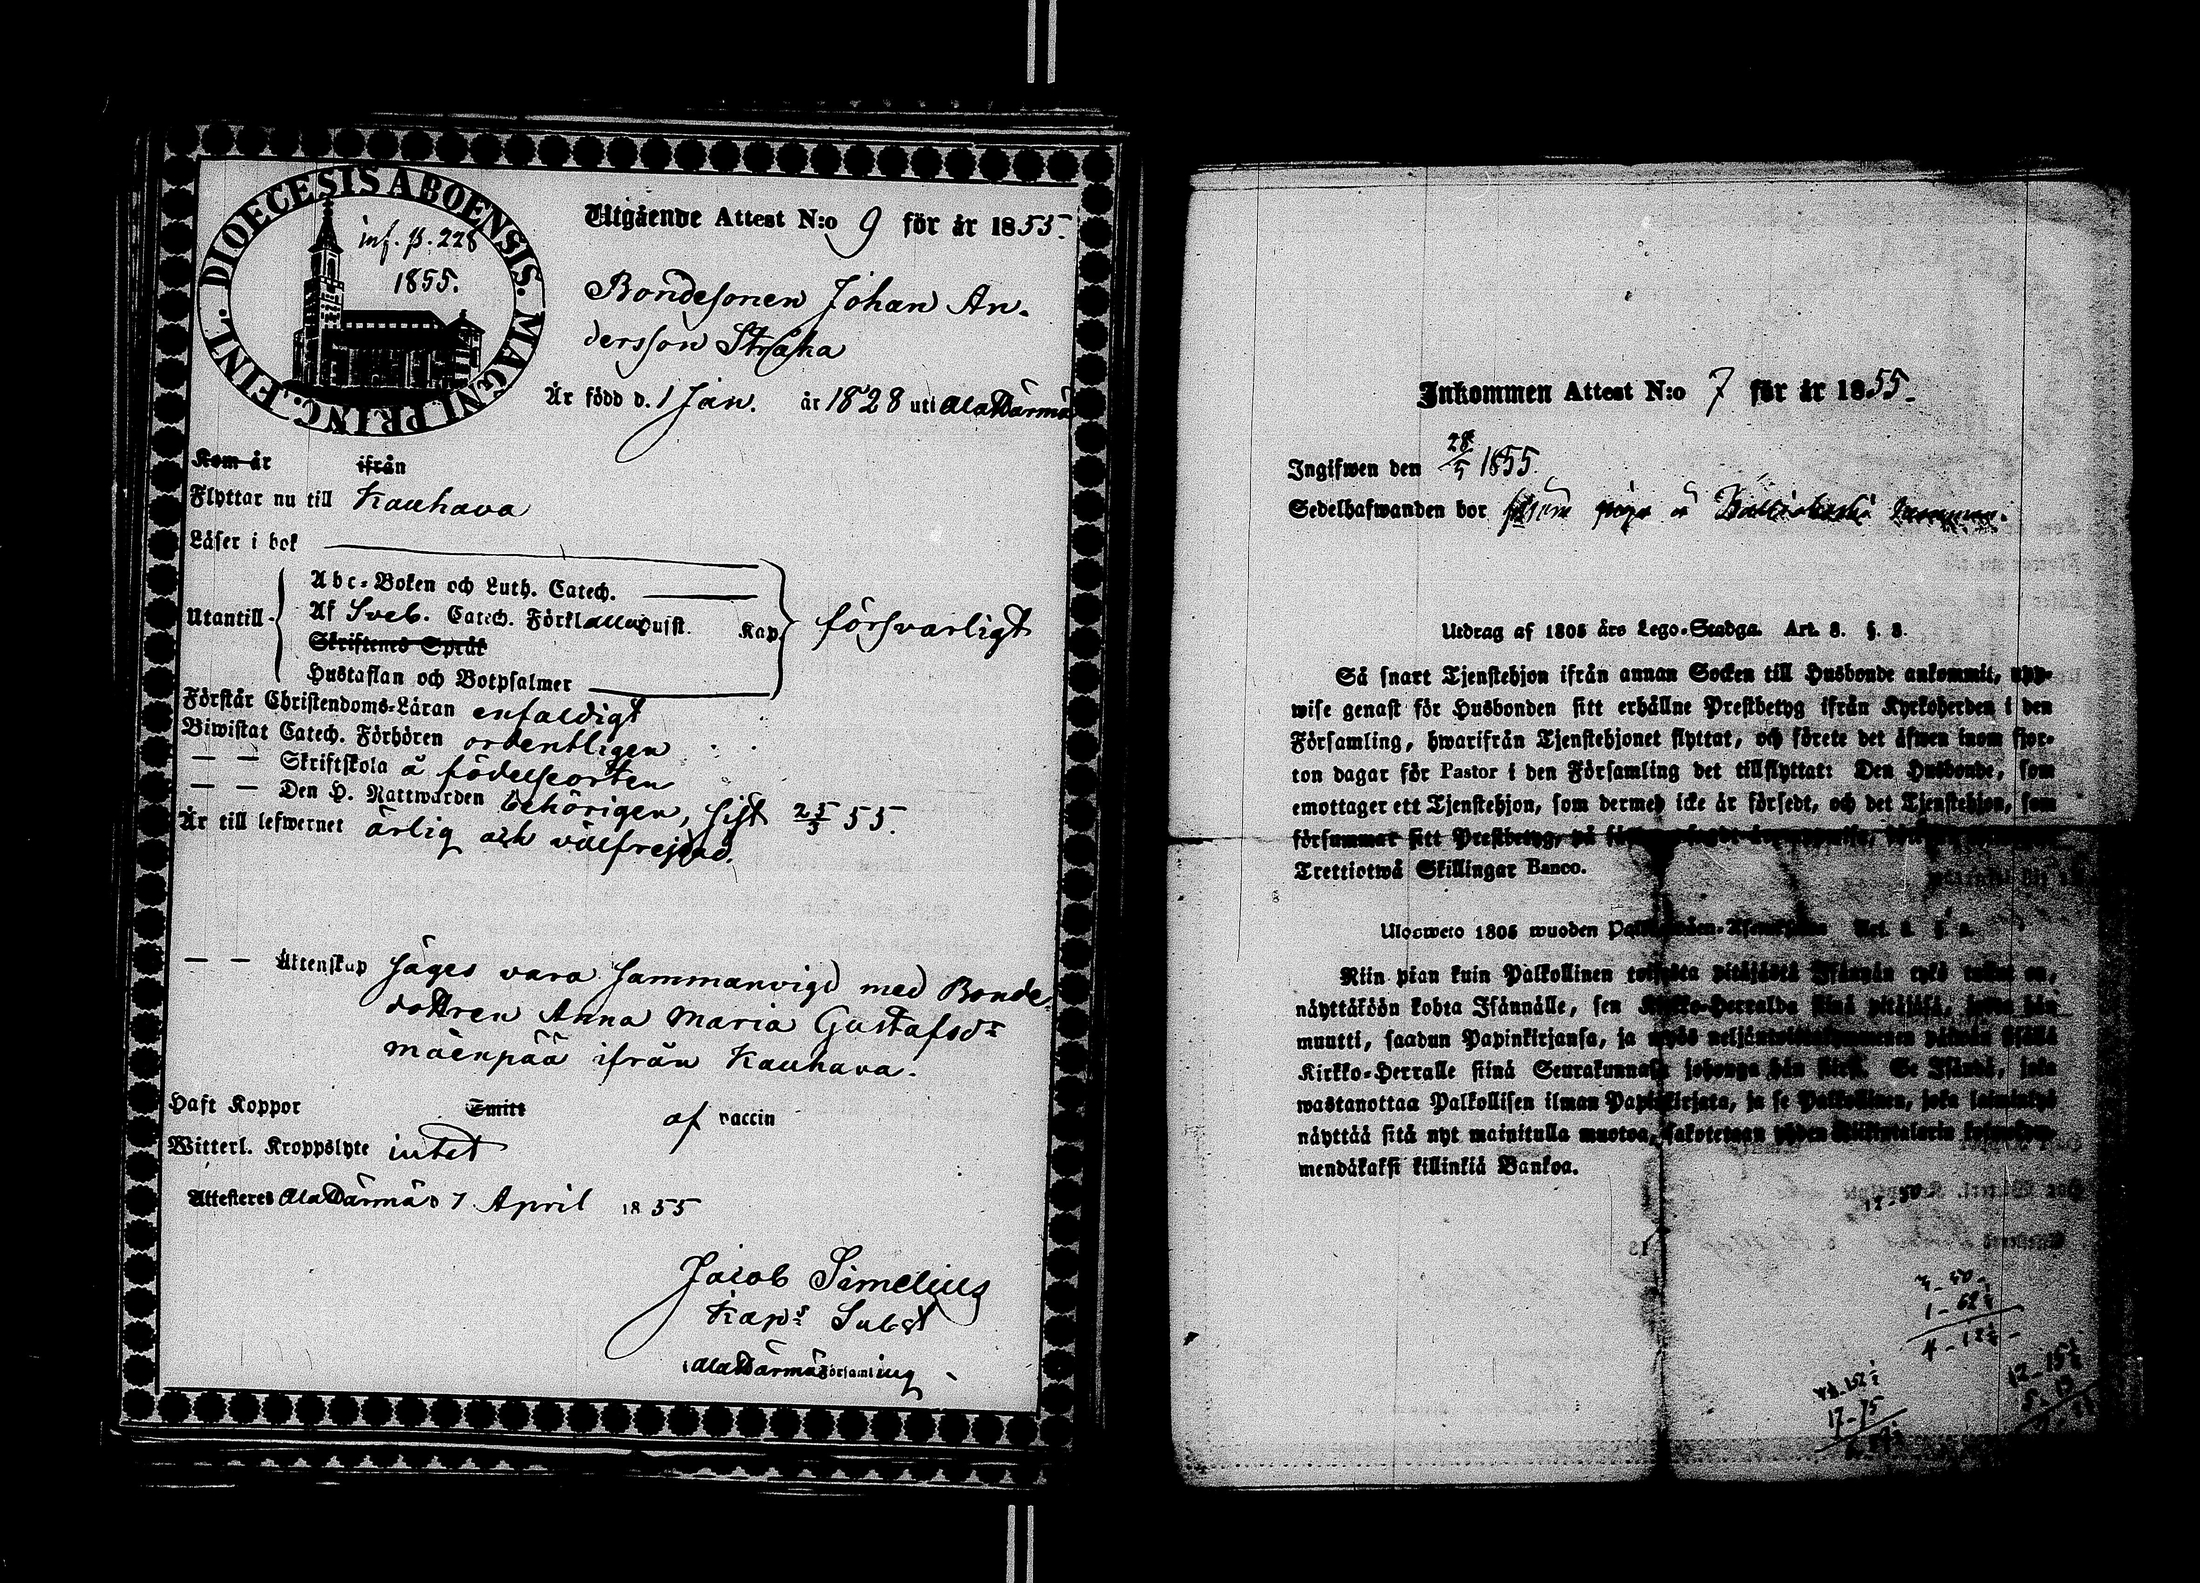 DIOECESIS ABOENSIS. MAGNI PRINC. FINL.
inf. p. 228
1855.
Utgående Attest N:o 9 för år 1855.
Bondesonen Johan An-
dersson Straka
Är född d. 1 Jan. år 1828 uti AlaHärmä
Kom år ifrån
Flyttar nu till Kauhava
Läser i bok
Utantill
Abc-Boken och Luth. Catech.
Af Sveb. Catech. Förkl. Hufst. Kap. försvarligt
Skriftenes Språk
Hustaflan och Botpsalmer
Förstår Christendoms-Läran enfaldigt
Biwistat Catech. Förhören ordentligen
— — Skriftskola å födelseorten
— — Den H. Nattwarden behörigen, sist 25/3 55.
Är till lefwernet ärlig och välfrejdad.
— — Äktenskap säges vara sammanvigd med Bonde-
dottren Anna Maria Gustafsdr
Mäenpää ifrån Kauhava.
Haft Koppor Smitt af vaccin
Witterl. Kroppslyte intet
Attesteres AlaHärmä d 7 April 1855
Jacob Simelius
Kaps Subst
i AlaHärmä Församling
Inkommen Attest N:o 7 för år 1855.
Ingifwen den 28/5 1855.
Sedelhafwanden bor
Utdrag af 1805 års Lego-Stadga. Art. 8. §. 8.
Så snart Tjenstehjon ifrån annan Socken till Husbonde ankommit, upp-
wise genast för Husbonden sitt erhållne Prestbetyg ifrån Kyrkoherden i den
Församling, hwarifrån Tjenstehjonet flyttat, och förete det äfwen inom fjor-
ton dagar för Pastor i den Församling det tillflyttat: Den Husbonde, som
emottager ett Tjenstehjon, som dermed icke är försedt, och det Tjenstehjon, som
försummar sitt Prestbetyg, på
Trettiotwå Skillingar Banco.
Ulosweto 1805 wuoden
Niin pian kuin Palkollinen toisesta pitäjästä Isännän tykö tullut on,
näyttäköön kohta Isännälle, sen Kirkko-Herralda siinä pitäjäsä, josta hän
muutti, saadun Papinkirjansa, ja myös neljäntoistakymmenen päiwän sisällä
Kirkko-Herralle siinä Seurakunnasa johonga hän siirsi. Se Isändä, joka
wastanottaa Palkollisen ilman Papinkirjata, ja se Palkollinen, joka laiminlyö
näyttää sitä nyt mainitulla muotoa, sakotetaan yhden Riikintalarin
mendäkaksi killinkiä Bankoa.
17-75